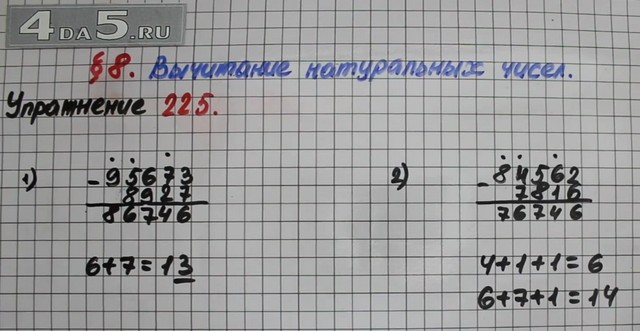 4DA5.RU
§ 8. Вычитание натуральных чисел.
Упражнение 225.
1) - 95673
8927
86746
6+7=13
2) - 84562
7816
76746
4+1+1=6
6+7+1=14